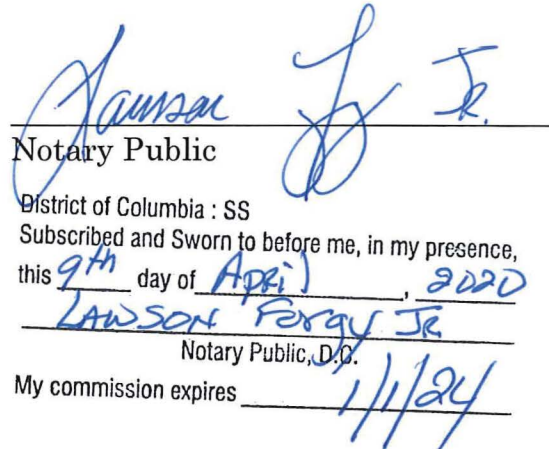 Lawson Fy Jr.
Notary Public
District of Columbia : SS
Subscribed and Sworn to before me, in my presence,
this 9th day of April, 2020
LAWSON Forgy JR
Notary Public, D.C.
My commission expires 1/1/24